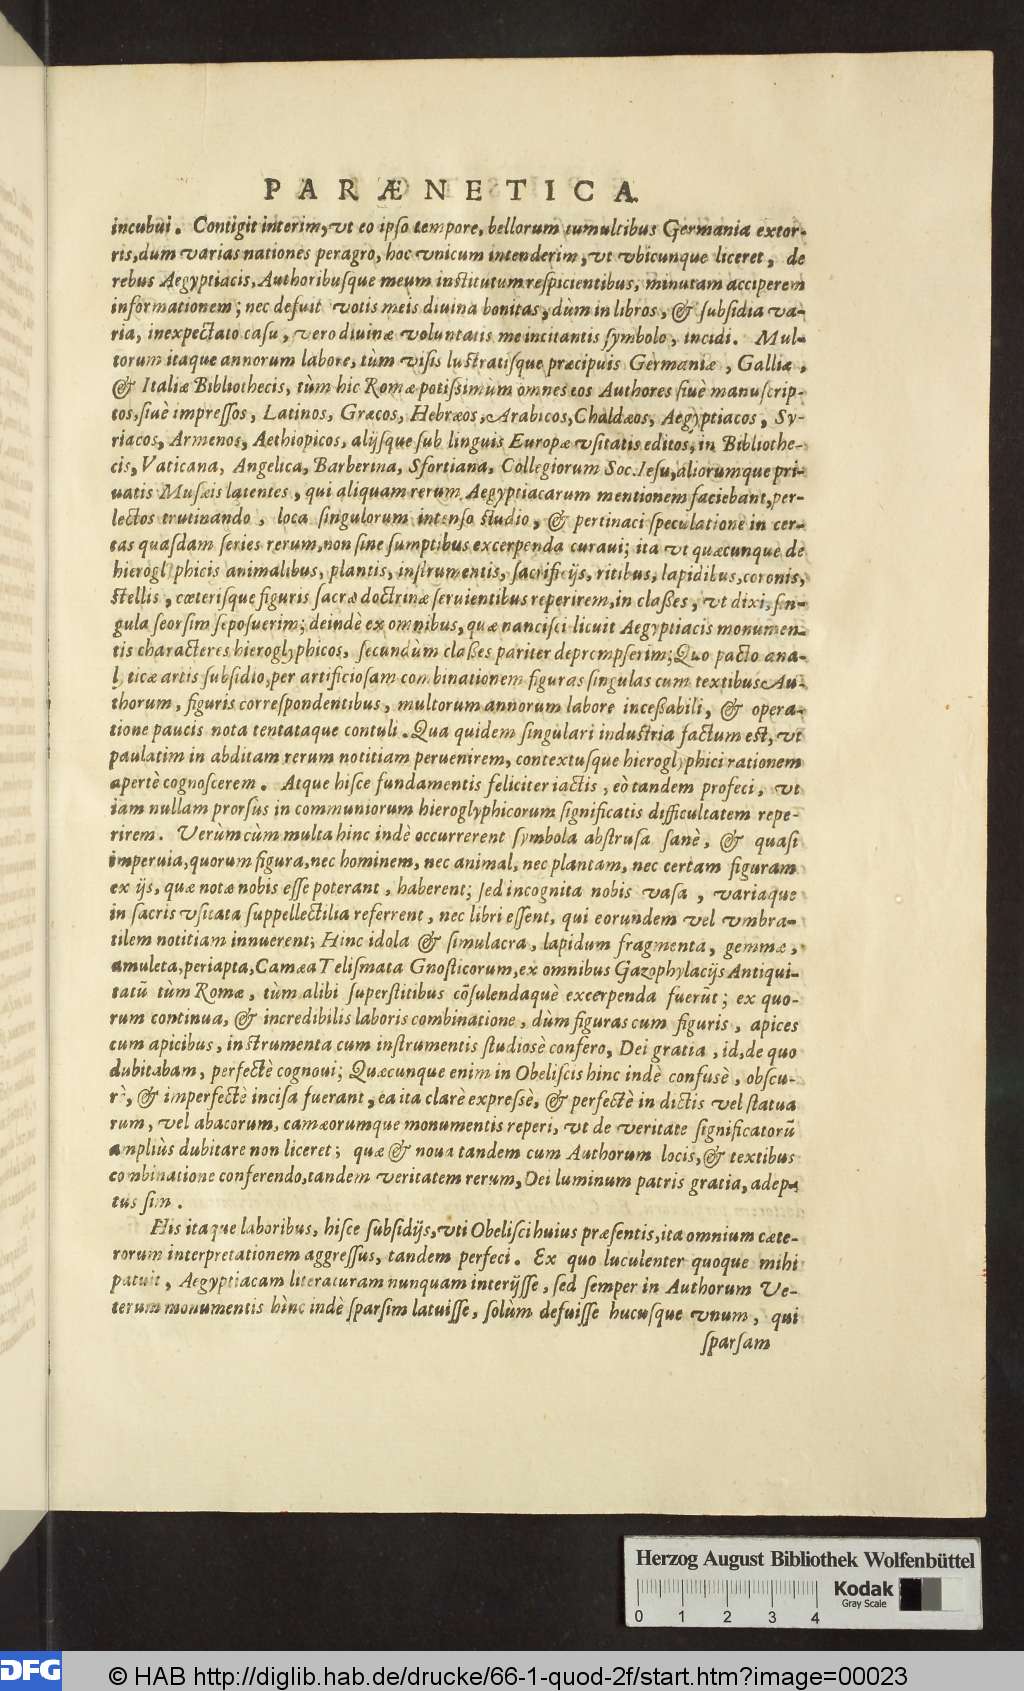 PARÆNETICA.
incubui. Contigit interim, vt eo ipso tempore, bellorum tumultibus Germania extor-
ris, dum varias nationes peragro, hoc vnicum intenderim, vt vbicunque liceret, de
rebus Aegyptiacis, Authoribusque meum institutum respicientibus, minutam acciperem
informationem; nec defuit votis meis diuina bonitas, dùm in libros, & subsidia va-
ria, inexpectato casu, vero diuinæ voluntatis me incitantis symbolo, incidi. Mul-
torum itaque annorum labore, tùm visis lustratisque præcipuis Germaniæ, Galliæ,
& Italiæ Bibliothecis, tùm hic Romæ potissimùm omnes eos Authores siuè manuscrip-
tos, siuè impressos, Latinos, Græcos, Hebræos, Arabicos, Chaldæos, Aegyptiacos, Sy-
riacos, Armenos, Aethiopicos, alijsque sub linguis Europæ vsitatis editos, in Bibliothe-
cis, Vaticana, Angelica, Barberina, Sfortiana, Collegiorum Soc. Iesu, aliorumque pri-
uatis Musæis latentes, qui aliquam rerum Aegyptiacarum mentionem faciebant, per-
lectos trutinando, loca singulorum intenso studio, & pertinaci speculatione in cer-
tas quasdam series rerum, non sine sumptibus excerpenda curaui; ita vt quæcunque de
hieroglyphicis animalibus, plantis, instrumentis, sacrificijs, ritibus, lapidibus, coronis,
stellis, cæterisque figuris sacræ doctrinæ seruientibus reperirem, in classes, vt dixi, sin-
gula seorsim seposuerim; deindè ex omnibus, quæ nancisci licuit Aegyptiacis monumen-
tis characteres hieroglyphicos, secundùm classes pariter deprompserim; Quo pacto ana-
lyticæ artis subsidio, per artificiosam combinationem figuras singulas cum textibus Au-
thorum, figuris correspondentibus, multorum annorum labore incessabili, & opera-
tione paucis nota tentataque contuli. Qua quidem singulari industria factum est, vt
paulatim in abditam rerum notitiam peruenirem, contextusque hieroglyphici rationem
apertè cognoscerem. Atque hisce fundamentis feliciter iactis, eò tandem profeci, vt
iam nullam prorsùs in communiorum hieroglyphicorum significatis difficultatem repe-
rirem. Verùm cùm multa hinc indè occurrerent symbola abstrusa sanè, & quasi
imperuia, quorum figura, nec hominem, nec animal, nec plantam, nec certam figuram
ex ijs, quæ notæ nobis esse poterant, haberent; sed incognita nobis vasa, variaque
in sacris vsitata suppellectilia referrent, nec libri essent, qui eorundem vel vmbra-
tilem notitiam innuerent; Hinc idola & simulacra, lapidum fragmenta, gemmæ,
amuleta, periapta, Camæa Telismata Gnosticorum, ex omnibus Gazophylacijs Antiqui-
tatũ tùm Romæ, tùm alibi superstitibus cõsulendaquè excerpenda fuerũt; ex quo-
rum continua, & incredibilis laboris combinatione, dùm figuras cum figuris, apices
cum apicibus, instrumenta cum instrumentis studiosè confero, Dei gratia, id, de quo
dubitabam, perfectè cognoui; Quæcunque enim in Obeliscis hinc indè confusè, obscu-
rè, & imperfectè incisa fuerant, ea ita clarè expressè, & perfectè in dictis vel statua
rum, vel abacorum, camæorumque monumentis reperi, vt de veritate significatorũ
ampliùs dubitare non liceret; quæ & noua tandem cum Authorum locis, & textibus
combinatione conferendo, tandem veritatem rerum, Dei luminum patris gratia, adep-
tus sim.
His itaque laboribus, hisce subsidijs, vti Obelisci huius præsentis, ita omnium cæte-
rorum interpretationem aggressus, tandem perfeci. Ex quo luculenter quoque mihi
patuit, Aegyptiacam literaturam nunquam interijsse, sed semper in Authorum Ve-
terum monumentis hinc indè sparsim latuisse, solùm defuisse hucusque vnum, qui
sparsam
Herzog August Bibliothek Wolfenbüttel
Kodak
Gray Scale
0 1 2 3 4
DFG
© HAB http://diglib.hab.de/drucke/66-1-quod-2f/start.htm?image=00023